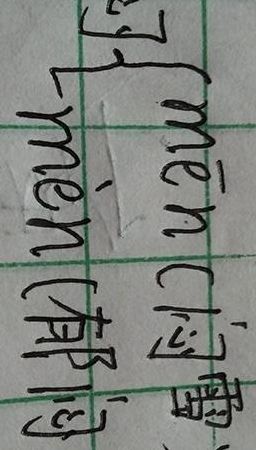 mēn (闷雷
mèn (郁闷